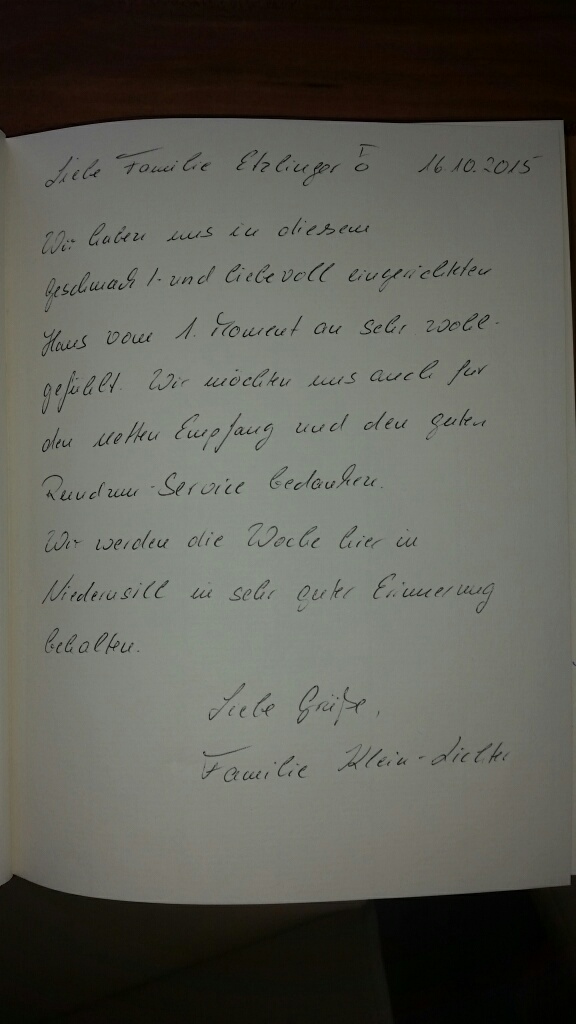 Liebe Familie Etzlinger 16.10.2015
Wir haben uns in diesem
geschmack- und liebevoll eingerichteten
Haus vom 1. Moment an sehr wohl-
gefühlt. Wir möchten uns auch für
den netten Empfang und den guten
Rundum-Service bedanken.
Wir werden die Woche hier in
Niedernsill in sehr guter Erinnerung
behalten.
Liebe Grüße,
Familie Klein-Lichter